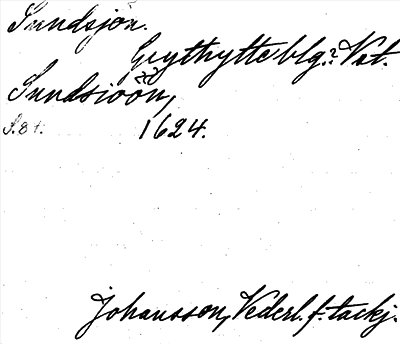 Sundsjön.
Grythytte blg.? Vst.
Sundsioön,
S. 81. 1624.
Johansson, Vederl. f. tackj.